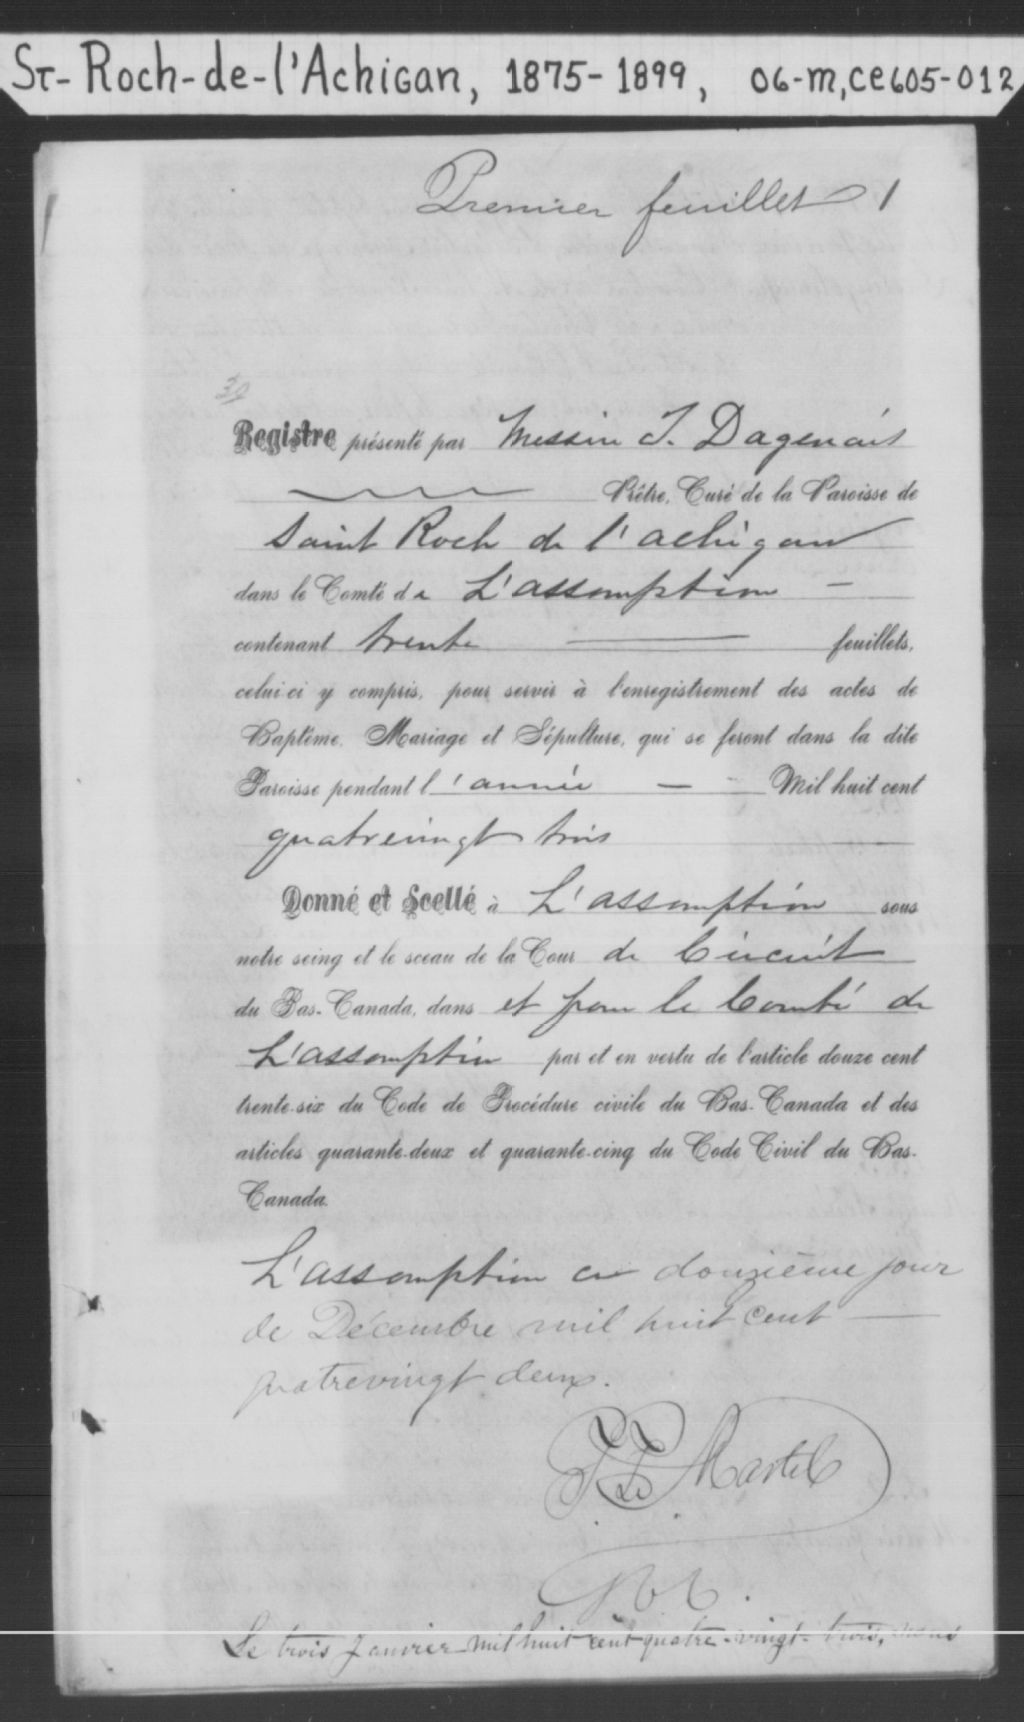 St-Roch-de-l'Achigan, 1875-1899, 06-m,ce605-012
Premier feuillet 1
30
Registre présenté par Messire J. Dagenais
Prêtre, Curé de la Paroisse de
Saint Roch de l'achigan
dans le Comté de L'assomption —
contenant trente — feuillets,
celui ci y compris, pour servir à l'enregistrement des actes de
Baptême, Mariage et Sépulture, qui se feront dans la dite
Paroisse pendant l'année — Mil huit cent
quatrevingt trois
Donné et Scellé à L'assomption sous
notre seing et le sceau de la Cour de Circuit
du Bas-Canada, dans et pour le Comté de
L'assomption par et en vertu de l'article douze cent
trente-six du Code de Procédure civile du Bas-Canada et des
articles quarante-deux et quarante-cinq du Code Civil du Bas-
Canada.
L'assomption ce douzième jour
de Décembre mil huit cent —
quatrevingt deux.
Martel
Le trois Janvier mil huit cent quatre-vingt-trois, nous